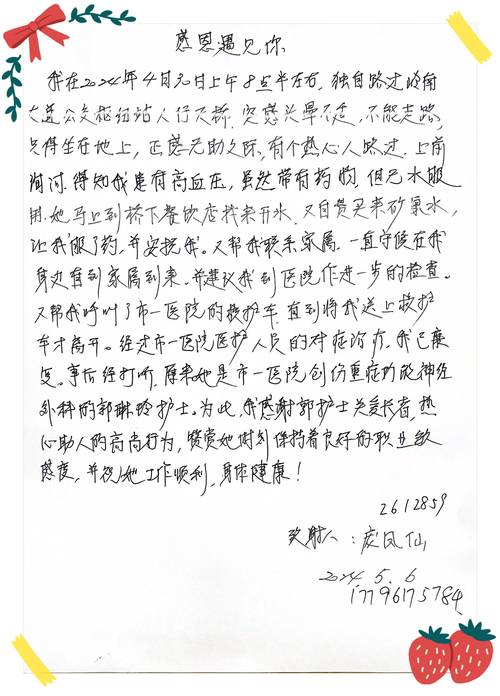 感恩遇见你
我在2024年4月元日上午8点半左右，独自路过岭南
大道公交枢纽站人行天桥，突感头晕不适，不能走路，
只得坐在地上，正感无助之际，有个热心人路过，上前
询问，得知我患有高血压，虽然带有药物，但无水服
用。她马上到桥下餐饮店找来开水，又自费买来矿泉水，
让我服了药，并安抚我。又帮我联系家属，一直守候在我
身边直到家属到来，并建议我到医院作进一步的检查。
又帮我呼叫了市一医院的救护车，直到将我送上救护
车才离开。经过市一医院医护人员的对症治疗，我已康
复。事后经打听，原来她是市一医院创伤重症功能神经
外科的郭琳玲护士。为此，我感谢郭护士关爱长者，热
心助人的高尚行为，赞赏她时刻保持着良好的职业敏
感度，并祝她工作顺利，身体健康！
2612859
致谢人：庞凤仙
2024.5.6
17796175784